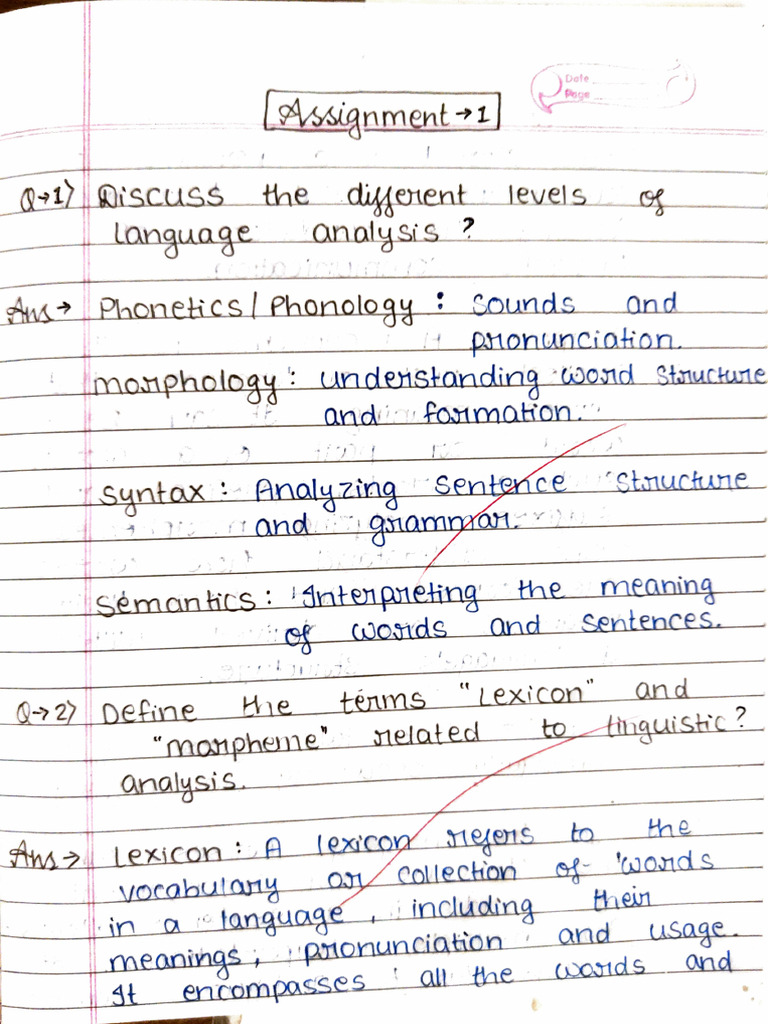 Date
Page
Assignment → 1
Q→1) Discuss the different levels of
language analysis ?
Ans → Phonetics / Phonology : sounds and
pronunciation.
morphology : understanding word structure
and formation.
syntax : Analyzing sentence structure
and grammar.
semantics : Interpreting the meaning
of words and sentences.
Q→2) Define the terms "Lexicon" and
"morpheme" related to linguistic?
analysis.
Ans → Lexicon : A lexicon refers to the
vocabulary or collection of words
in a language, including their
meanings, pronunciation and usage.
It encompasses all the words and